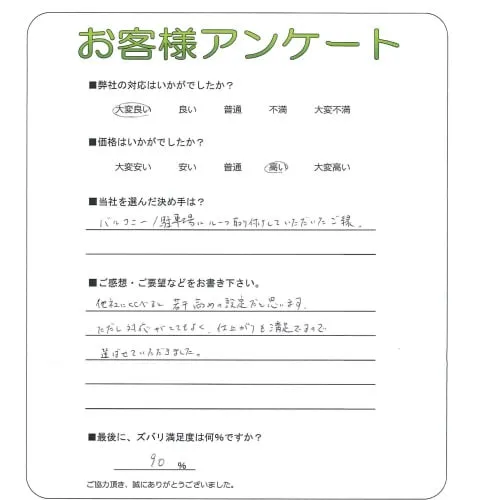 お客様アンケート
■弊社の対応はいかがでしたか？
大変良い 良い 普通 不満 大変不満
■価格はいかがでしたか？
大変安い 安い 普通 高い 大変高い
■当社を選んだ決め手は？
バルコニー/駐車場にルーフ取り付けしていただいたご縁。
■ご感想・ご要望などをお書き下さい。
他社にくらべると 若干高めの設定だと思います。
ただし 対応がとてもよく、仕上がりも満足ですので
選ばせていただきました。
■最後に、ズバリ満足度は何％ですか？
90 ％
ご協力頂き、誠にありがとうございました。